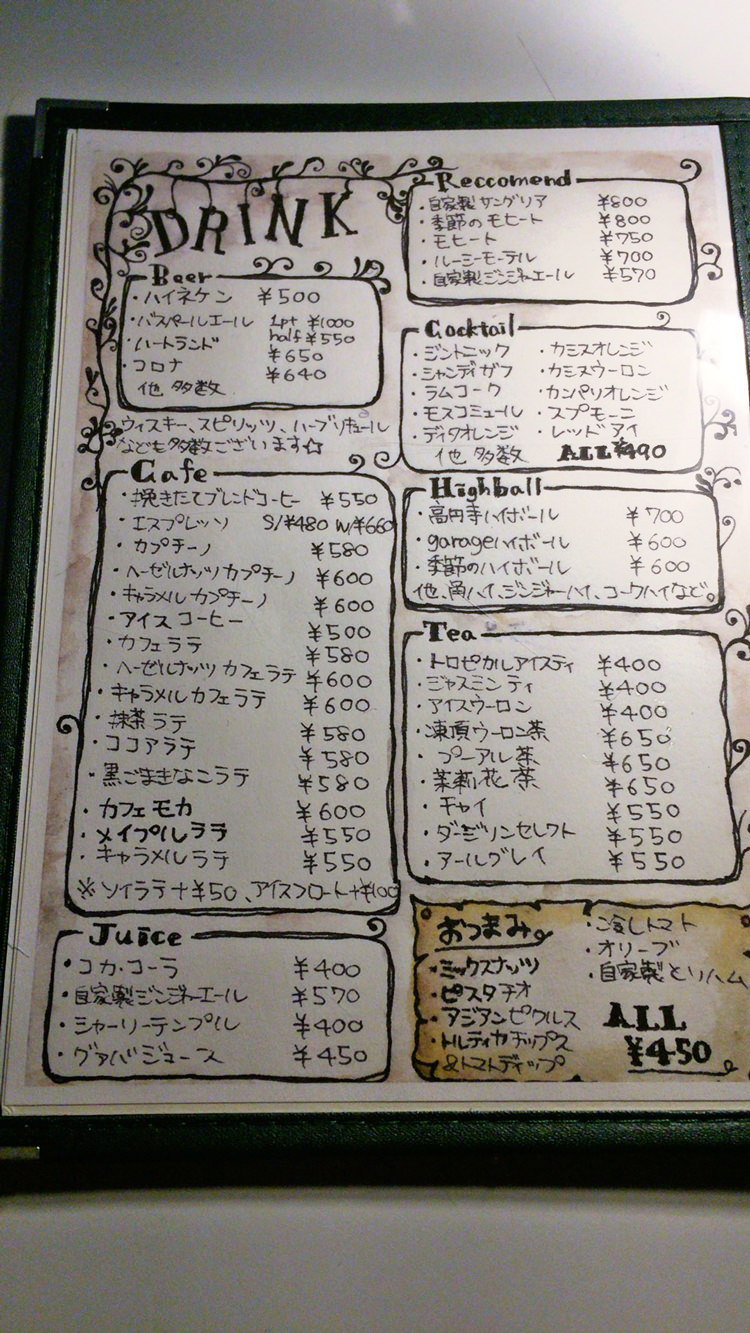 DRINK
Beer
・ハイネケン ¥500
・バスペールエール 1pt ¥1000
half ¥550
・ハートランド ¥650
・コロナ ¥640
他 多数
ウィスキー、スピリッツ、ハーブリキュール
なども多数ございます☆
Cafe
・挽きたてブレンドコーヒー ¥550
・エスプレッソ S/¥480 W/¥660
・カプチーノ ¥580
・ヘーゼルナッツカプチーノ ¥600
・キャラメルカプチーノ ¥600
・アイスコーヒー ¥500
・カフェラテ ¥580
・ヘーゼルナッツカフェラテ ¥600
・キャラメルカフェラテ ¥600
・抹茶ラテ ¥580
・ココアラテ ¥580
・黒ごまきなこラテ ¥580
・カフェモカ ¥600
・メイプルララ ¥550
・キャラメルラテ ¥550
※ソイラテ+¥50、アイスフロート+¥100
Juice
・コカ・コーラ ¥400
・自家製ジンジャエール ¥570
・シャーリーテンプル ¥400
・グァバジュース ¥450
Reccomend
・自家製サングリア ¥800
・季節のモヒート ¥800
・モヒート ¥750
・ルーシーモーテル ¥700
・自家製ジンジャエール ¥570
Cocktail
・ジントニック ・カシスオレンジ
・シャンディガフ ・カシスウーロン
・ラムコーク ・カンパリオレンジ
・モスコミュール ・スプモーニ
・ディタオレンジ ・レッドアイ
他 多数 ALL ¥490
Highball
・高円寺ハイボール ¥700
・garageハイボール ¥600
・季節のハイボール ¥600
他、角ハイ、ジンジャーハイ、コークハイなど。
Tea
・トロピカルアイスティ ¥400
・ジャスミンティ ¥400
・アイスウーロン ¥400
・凍頂ウーロン茶 ¥650
・プーアル茶 ¥650
・茉莉花茶 ¥650
・チャイ ¥550
・ダージリンセレクト ¥550
・アールグレイ ¥550
おつまみ
・ミックスナッツ
・ピスタチオ
・アジアンピクルス
・トルティカチップス
&トマトディップ
・冷しトマト
・オリーブ
・自家製とりハム
ALL
¥450